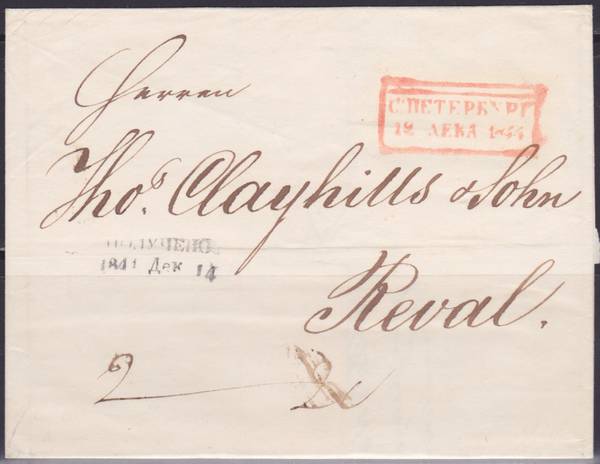 Herren
С.ПЕТЕРБУРГ
12 ДЕКА 1844
Thos. Clayhills & Sohn
ПОЛУЧЕНО
1844 Дек 14
Reval.
2